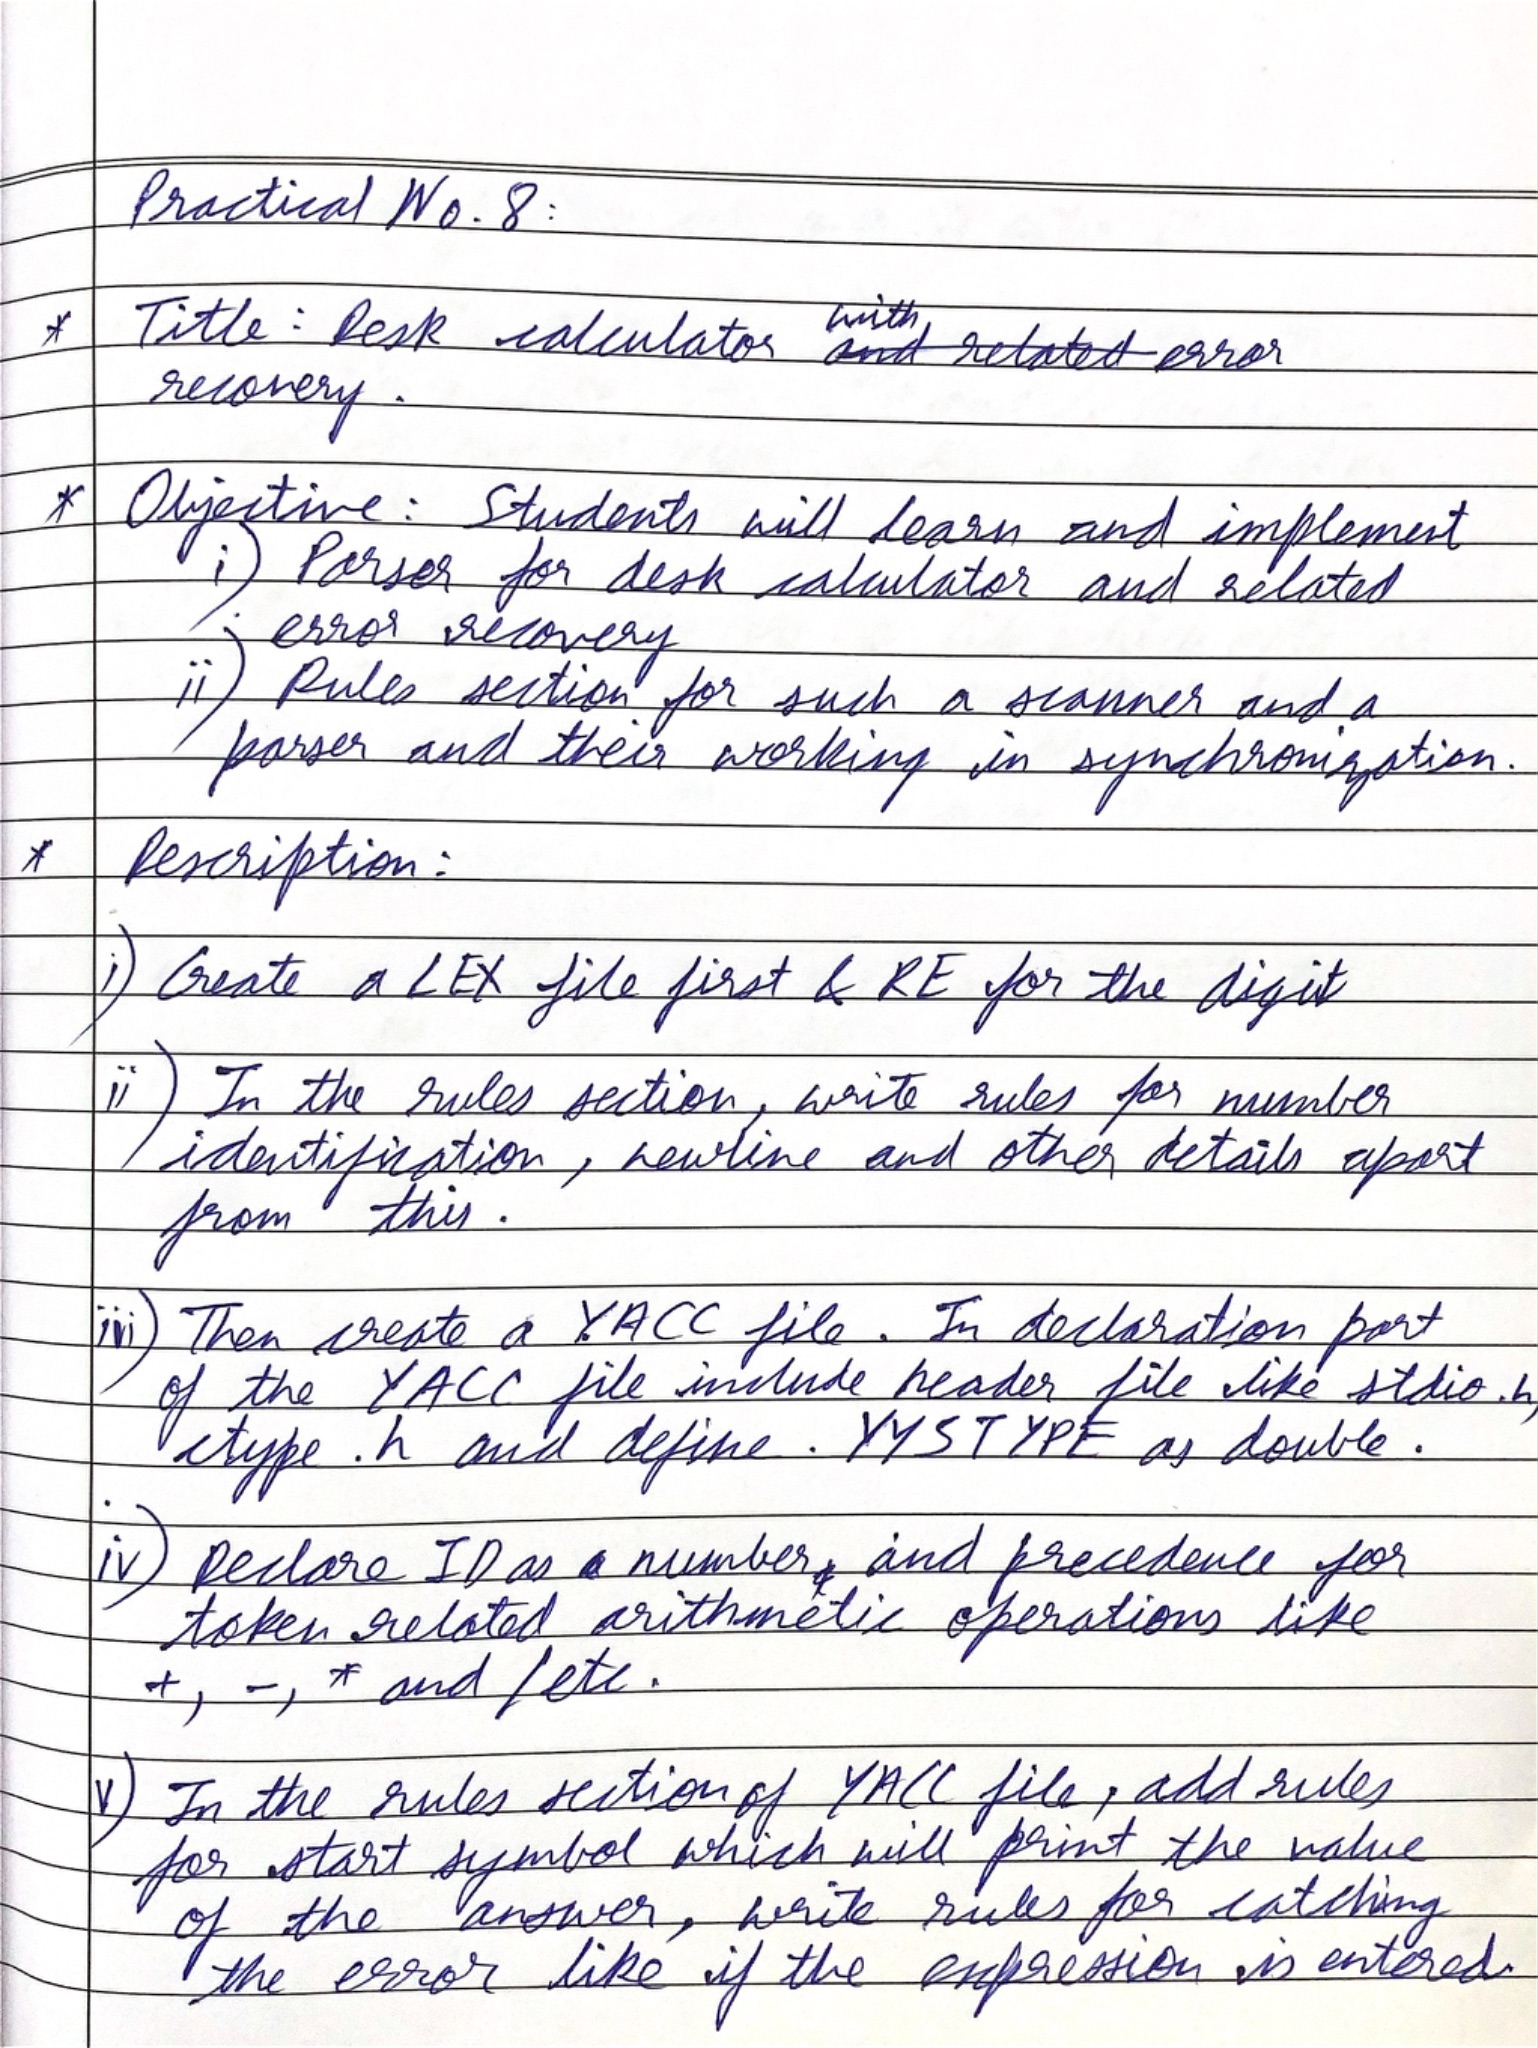 Practical No. 8:
* Title: Desk calculator with and related error
recovery.
* Objective: Students will learn and implement
i) Parser for desk calculator and related
error recovery
ii) Rules section for such a scanner and a
parser and their working in synchronization.
* Description:
i) Create a LEX file first & RE for the digit
ii) In the rules section, write rules for number
identification, newline and other details apart
from this.
iii) Then create a YACC file. In declaration part
of the YACC file include header file like stdio.h,
ctype.h and define. YYSTYPE as double.
iv) Declare ID as a number, and precedence for
token related arithmetic operations like
+, -, * and / etc.
v) In the rules section of YACC file, add rules
for start symbol which will print the value
of the answer, write rules for catching
the error like if the expression is entered.